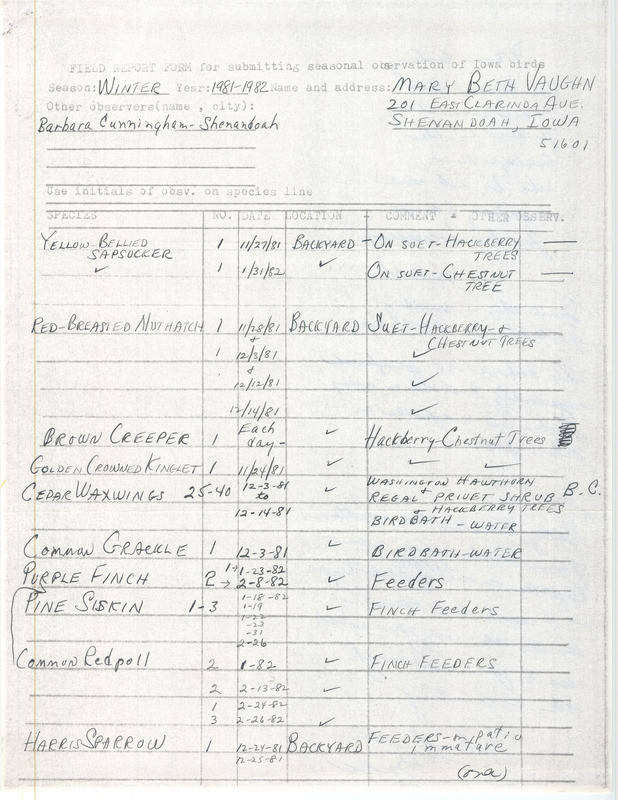 FIELD REPORT FORM for submitting seasonal observation of Iowa birds
Season: WINTER Year: 1981-1982 Name and address: MARY BETH VAUGHN
Other observers(name , city): 201 EAST CLARINDA AVE.
Barbara Cunningham- Shenandoah SHENANDOAH, IOWA
51601
Use initials of obsv. on species line
SPECIES NO. DATE LOCATION - COMMENT & OTHER OBSERV.
YELLOW-BELLIED SAPSUCKER 1 11/27/81 BACKYARD - ON SUET-HACKBERRY TREES —
✓ 1 1/31/82 ✓ ON SUET-CHESTNUT TREE —
RED-BREASTED NUTHATCH 1 11/28/81 BACKYARD SUET-HACKBERRY- &
& CHESTNUT TREES
1 12/3/81 ✓
&
12/12/81 ✓
12/14/81 ✓
BROWN CREEPER 1 Each day- ✓ Hackberry-Chestnut Trees
GOLDEN CROWNED KINGLET 1 11/24/81 ✓ ✓ ✓
CEDAR WAXWINGS 25-40 12-3-81 ✓ WASHINGTON HAWTHORN
to REGAL & PRIVET SHRUB B.C.
12-14-81 & HACKBERRY TREES
BIRDBATH - WATER
COMMON GRACKLE 1 12-3-81 ✓ BIRDBATH-WATER
PURPLE FINCH 1→ 1-23-82
2→ 2-8-82 ✓ Feeders
PINE SISKIN 1-3 1-18-82 ✓ FINCH Feeders
1-19
1-22
-23
-31
2-26
Common Redpoll 2 1-82 ✓ FINCH FEEDERS
2 2-13-82 ✓
1 2-24-82
3 2-26-82 ✓
HARRIS SPARROW 1 12-24-81 BACKYARD FEEDERS-on patio
12-25-81 immature